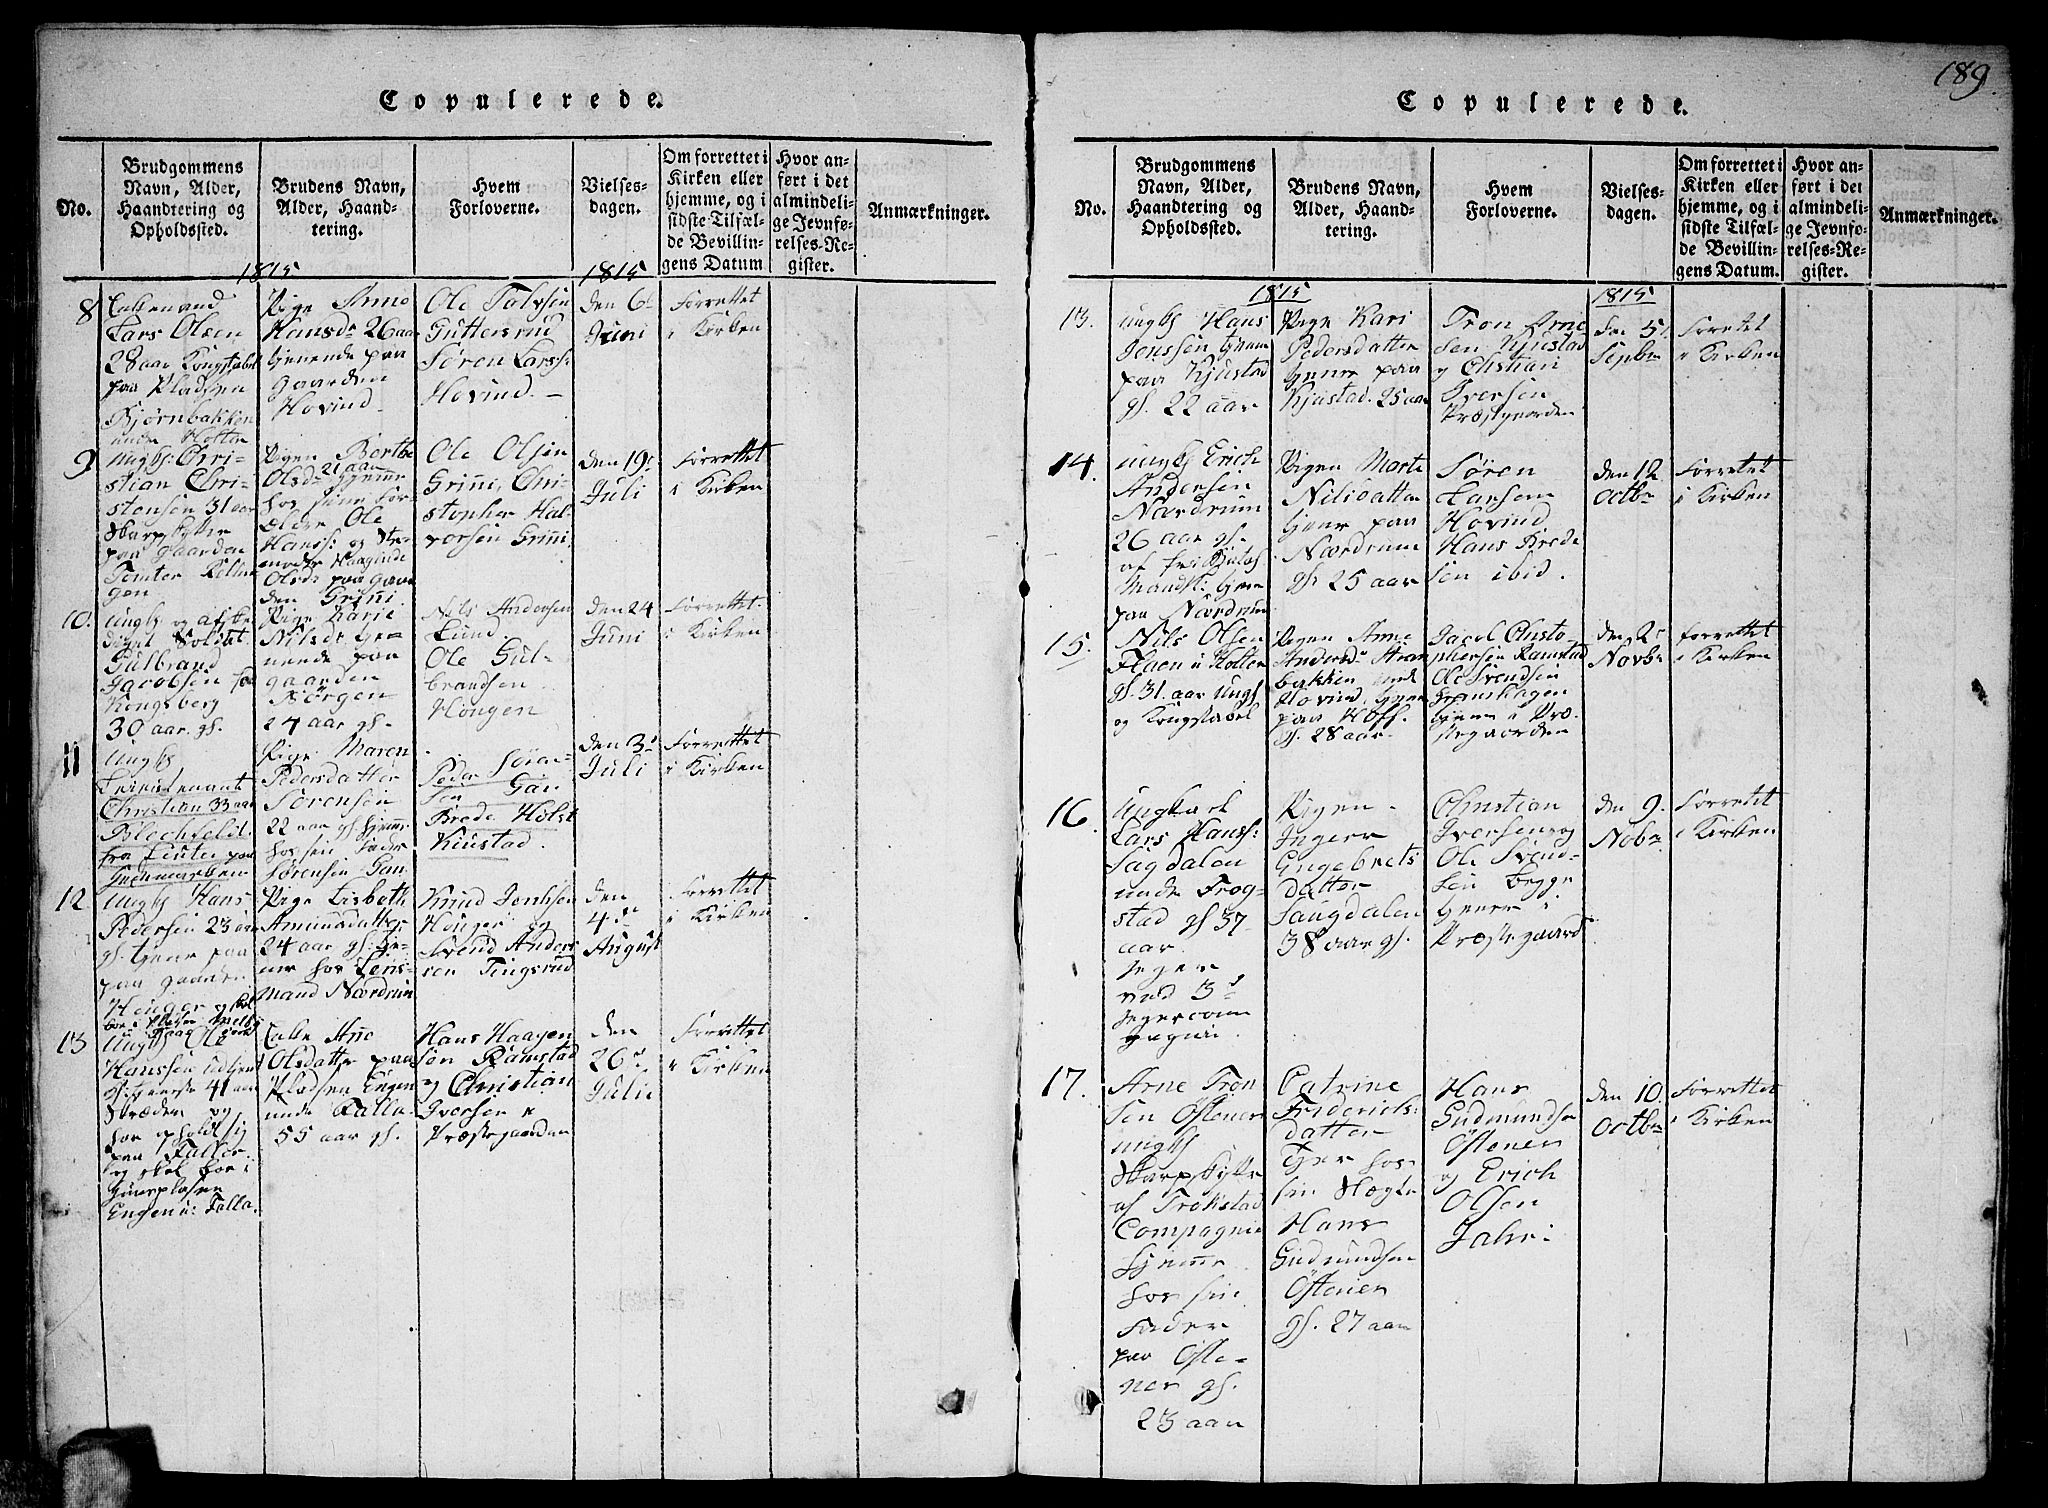 189.
Copulerede.
No.
Brudgommens
Navn, Alder,
Haandtering og
Opholdssted.
Brudens Navn,
Alder, Haand-
tering.
Hvem
Forloverne.
Vielses-
dagen.
Om forrettet i
Kirken eller
hjemme, og i
sidste Tilfæl-
de Bevillin-
gens Datum
Hvor an-
ført i det
almindeli-
ge Jevnfø-
relses-Re-
gister.
Anmærkninger.
1815
1815
8
Enkemand
Lars Olsen
28 aar Kongstabel
paa Pladsen
Bjørnbakken
unde Holter
Pige Anne
Hansdr 26 aar
tjenende paa
gaarden
Hovind
Ole Tolvsen
Guttersrud
Søren Larss:
Hovind. –
den 6
Juni
Forrettet
i Kirken
9
Ungk: Chri-
stian Chri-
stensen 31 aar
Skarpskytter
paa gaarden
Tomter
Pigen Berthe
Olsdr 21 aar hjemme
hos sine For-
ældre Ole
Hanss: og
Olsdr paa gaar
den Grini
Ole Olsen
Grini, Chri-
stopher Hal-
vorsen Grini
den 19
Juli
Forrettet
i Kirken
10.
Ungk og afske
diget Soldat
Gulbrand
Jacobsen fra
Kongsberg
30 aar. gl.
Pige Karie
Nilsdr tje-
nende paa
gaarden
Børgen
24 aar gl.
Nils Andersen
Lund
Ole Gul-
brandsen
Hongen
den 24
Juni
Forrettet
i Kirken
11
Ungk
Leiutenant
Christian 33 aar
Blechfeldt
fra Leuten paa
Hedemarken
Pige Maren
Pedersdatter
Sørensen
22 aar gl hjemme
hos sin Fader
Sørensen Gan
Peder Søren-
sen Gan
Brede Holst
Kiustad.
den 3d
Juli
Forrettet
i Kirken
12
Ungk Hans
Pedersen 23 aar
gl. tjener paa
paa gaarden
Pige Lisbeth
Amundsdatter
24 aar gl. tje-
ner hos Lens-
mand Nærdrum
Knud Jonsen
Hønger og
Svend Anders
sen Tingsrud
den
4de
August
Forrettet
i Kirken
13
Ungk Ole
Hanssen udtjent
41 aar
Skræder og
har opholdt sig
paa Falla
og skal boe i
Huusplasen
Engen u: Falla.
Enke Ane
Olsdatter paa
Pladsen Engen
unde Falla
55 aar gl.
Hans Haagen
sen Ramstad
og Christian
Iversen i
Præstegaarden
den
26de
Juli
Forrettet
i Kirken
Copulerede.
No.
Brudgommens
Navn, Alder,
Haandtering og
Opholdssted.
Brudens Navn,
Alder, Haand-
tering.
Hvem
Forloverne.
Vielses-
dagen.
Om forrettet i
Kirken eller
hjemme, og i
sidste Tilfæl-
de Bevillin-
gens Datum.
Hvor an-
ført i det
almindeli-
ge Jevnfø-
relses-Re-
gister.
Anmærkninger.
1815
1815
13.
Ungk Hans
Jenssen tjener
paa Kjustad
gl. 22 aar
Pige Kari
Pedersdatter
tjener paa
Kjustad. 25 aar
Tron Arne
sen Kjustad
og Christian
Iversen
Præstgaarden
den 5
Sepbr
Forrettet
i Kirken
14.
Ungk Erich
Andersen
Nærdrum
26 aar gl.
af
Mandsk: tjener
paa Nærdrum
Pigen Marte
Nilsdatter
tjener paa
Nærdrum
gl. 25 aar
Søren
Larsen
Hovind
Hans Brede
sen ibid.
den 12
Octbr
Forrettet
i Kirken
15.
Nils Olsen
Floen u Holter
gl. 31. aar Ungk
og Kongstabel
Pigen Anne
Andersdr Stran
bakken unde
Hovind, tjener
paa Hoff.
gl. 28 aar.
Jacob Christo-
phersen Ramstad
Ole Svendsen
tjener i Præ-
stegaarden
den 2
Novbr
Forrettet
i Kirken
16.
Ungkarl
Lars Hanss:
Sagdalen
unde Frog-
stad gl 37
aar.
Jeger
ved 3d
Jegercom
pagni.
Pigen -
Inger
Engebrets
datter
Saugdalen
38 aar gl.
Christian
Iversen og
Ole Svend-
sen begge
tjener i
Præstegaard
den 9.
Nobr
Forrettet
i Kirken
17.
Arne Tron
sen Østener
Ungk
Skarpskytter
af Trøgstad
Compagnie
hjemme
hos sin
Fader
paa Øste-
ner gl.
23 aar
Catrine
Friderichs-
datter
Tjener hos
sin Slægte
Hans
Gudmundsen
Østener
gl. 27 aar
Hans
Gudmundsen
Østener
og Erich
Olsen
Jahr.
den 10.
Octbr
Forrettet
i Kirken